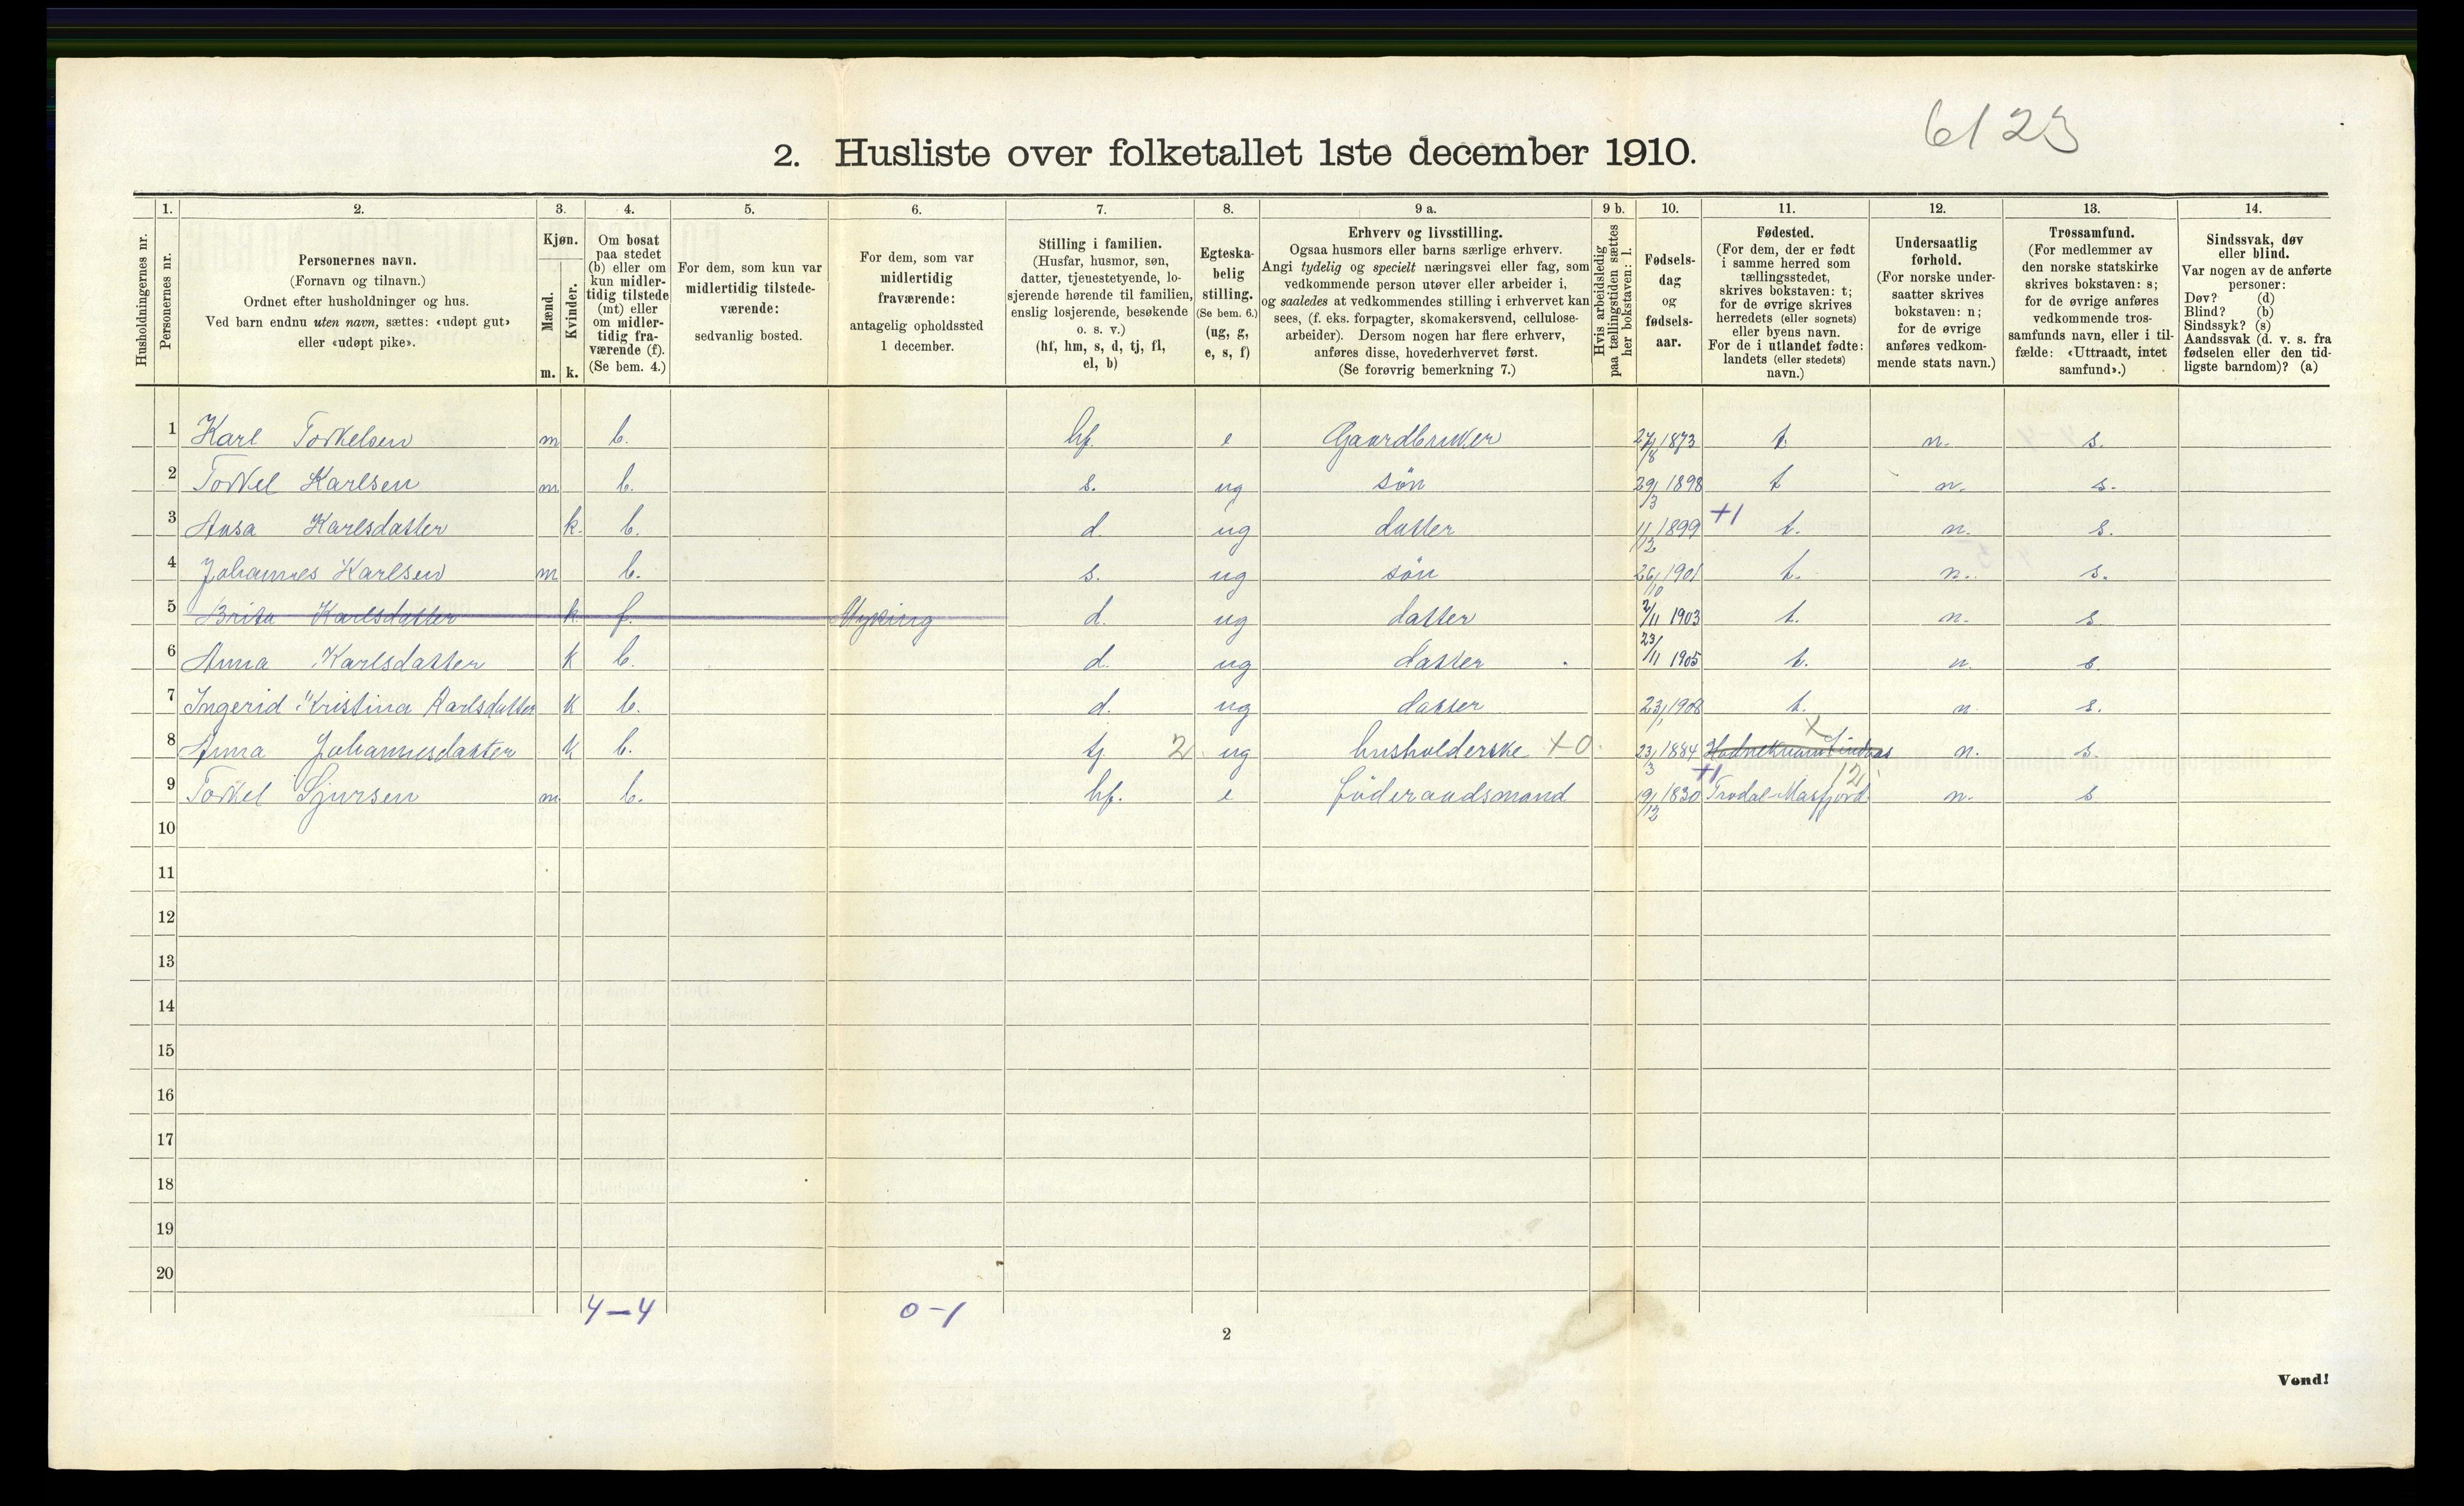 6123
2. Husliste over folketallet 1ste december 1910.
Husholdningernes nr.
1.
Personernes nr.
2.
Personernes navn.
(Fornavn og tilnavn.)
Ordnet efter husholdninger og hus.
Ved barn endnu uten navn, sættes: «udøpt gut»
eller «udøpt pike».
3.
Kjøn.
Mænd.
Kvinder.
m. k.
4.
Om bosat
paa stedet
(b) eller om
kun midler-
tidig tilstede
(mt) eller
om midler-
tidig fra-
værende (f).
(Se bem. 4.)
5.
For dem, som kun var
midlertidig tilstede-
værende:
sedvanlig bosted.
6.
For dem, som var
midlertidig
fraværende:
antagelig opholdssted
1 december.
7.
Stilling i familien.
(Husfar, husmor, søn,
datter, tjenestetyende, lo-
sjerende hørende til familien,
enslig losjerende, besøkende
o. s. v.)
(hf, hm, s, d, tj, fl,
el, b)
8.
Egteska-
belig
stilling.
(Se bem. 6.)
(ug, g,
e, s, f)
9 a.
Erhverv og livsstilling.
Ogsaa husmors eller barns særlige erhverv.
Angi tydelig og specielt næringsvei eller fag, som
vedkommende person utøver eller arbeider i,
og saaledes at vedkommendes stilling i erhvervet kan
sees, (f. eks. forpagter, skomakersvend, cellulose-
arbeider). Dersom nogen har flere erhverv,
anføres disse, hovederhvervet først.
(Se forøvrig bemerkning 7.)
9 b.
Hvis arbeidsledig
paa tællingstiden sættes
her bokstaven: l.
10.
Fødsels-
dag
og
fødsels-
aar.
11.
Fødested.
(For dem, der er født
i samme herred som
tællingsstedet,
skrives bokstaven: t;
for de øvrige skrives
herredets (eller sognets)
eller byens navn.
For de i utlandet fødte:
landets (eller stedets)
navn.)
12.
Undersaatlig
forhold.
(For norske under-
saatter skrives
bokstaven: n;
for de øvrige
anføres vedkom-
mende stats navn.)
13.
Trossamfund.
(For medlemmer av
den norske statskirke
skrives bokstaven: s;
for de øvrige anføres
vedkommende tros-
samfunds navn, eller i til-
fælde: «Uttraadt, intet
samfund».)
14.
Sindssvak, døv
eller blind.
Var nogen av de anførte
personer:
Døv? (d)
Blind? (b)
Sindssyk? (s)
Aandssvak (d. v. s. fra
fødselen eller den tid-
ligste barndom)? (a)
1 Karl Torkelsen m b. hf. e Gaardbruker 27/8 1873 t. n. s.
2 Torkel Karlsen m b. s. ug søn 29/3 1898 t n. s.
3 Ansa Karlsdatter k. b. d. ug datter 11/12 1899 +1 t. n. s.
4 Johannes Karlsen m b. s. ug søn 26/10 1901 t. n. s.
5 Brita Karlsdatter k f. Myking d. ug datter 2/11 1903 t. n. s.
6 Anna Karlsdatter k b. d. ug datter 23/11 1905 t. n. s.
7 Ingerid Kristina Karlsdatter k b. d. ug datter 23/1 1908 t. n. s.
8 Anna Johannesdatter k b. tj 2 ug husholderske +0. 23/3 1884 x Lindaas n. s.
9 Torkel Sjursen m. b. hf. e føderaadsmand 19/12 1830 +1 12 Trodal-Masfjord n. s
10
11
12
13
14
15
16
17
18
19
20
4-4 0-1
2
Vend!